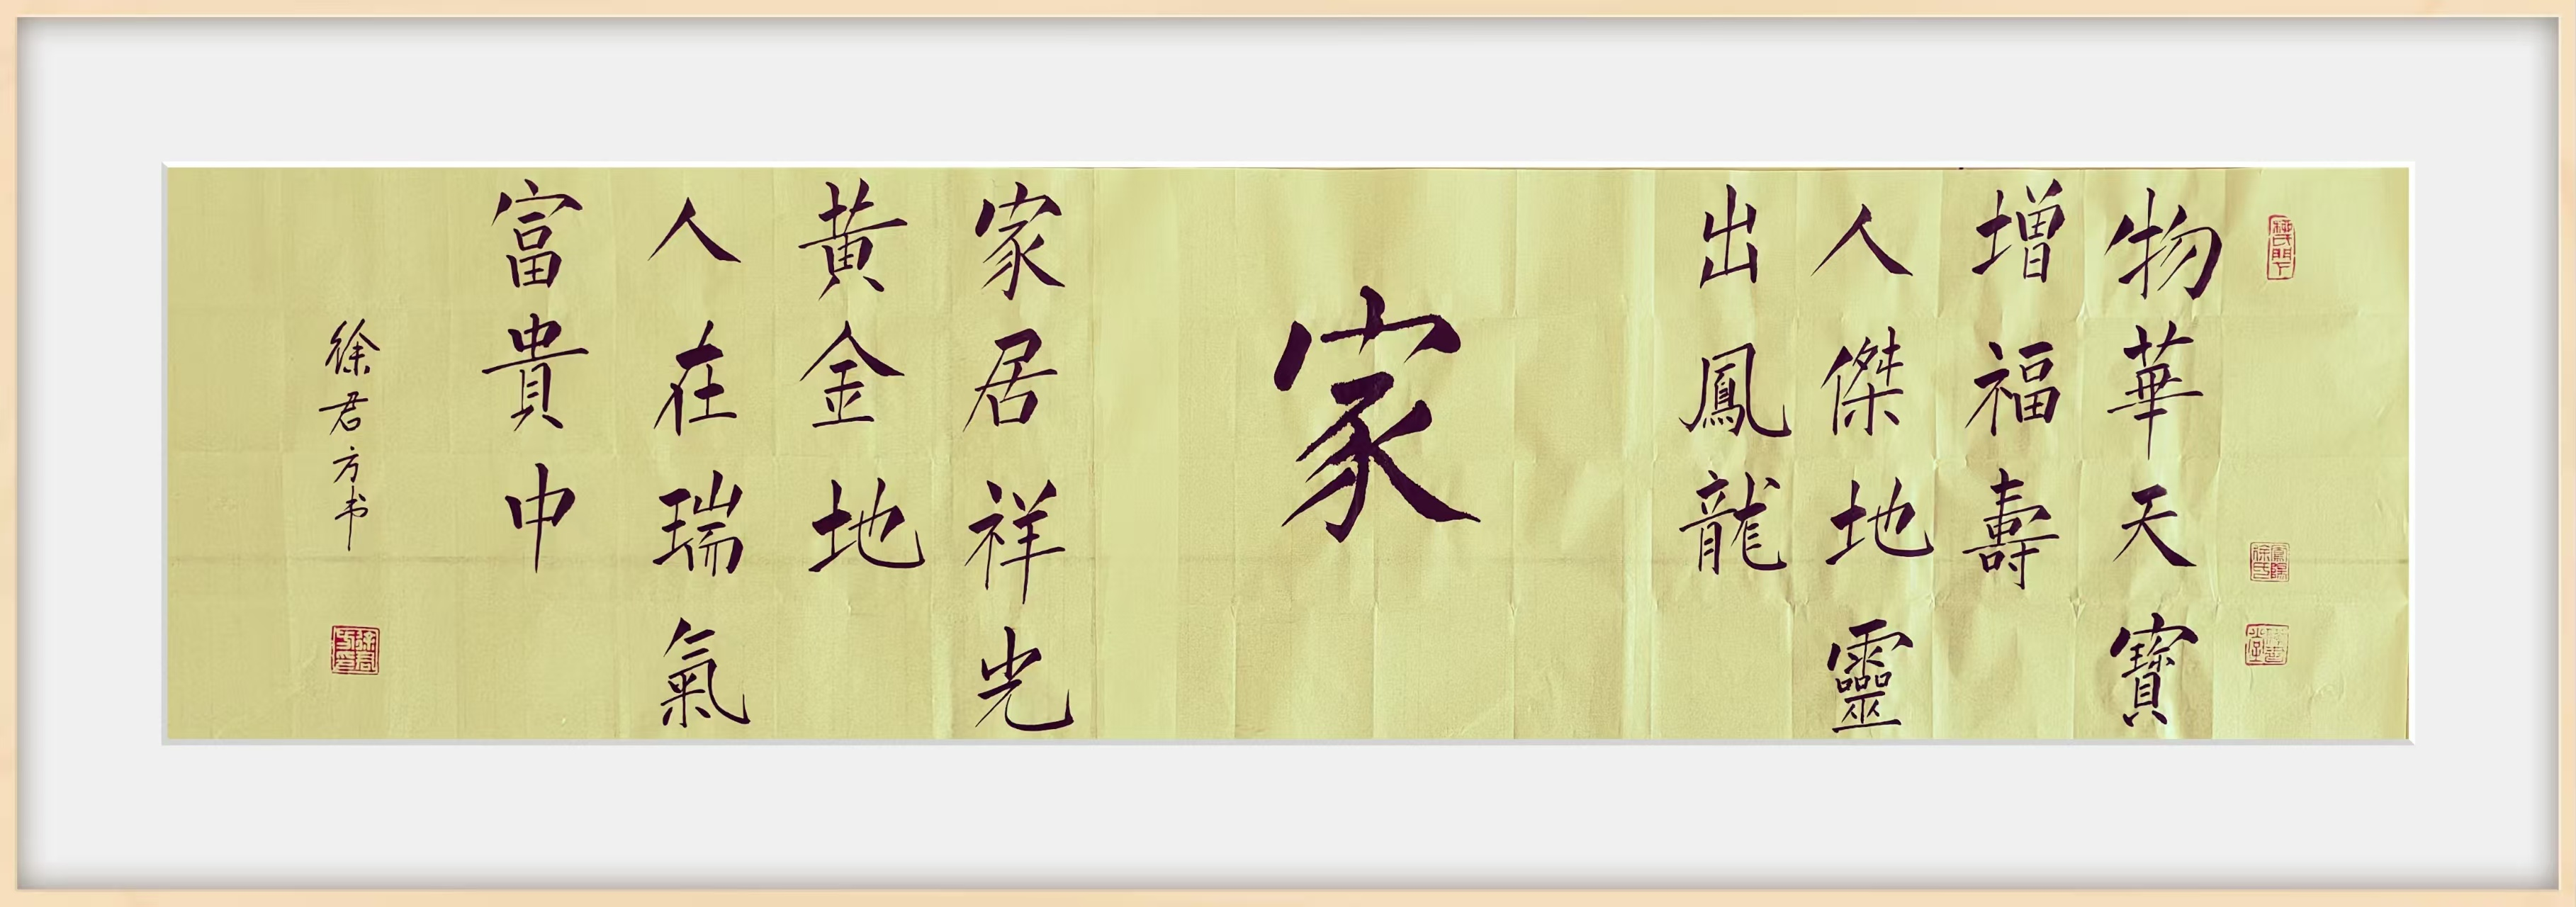 物華天寶
增福壽
人傑地靈
出鳳龍
家
家居祥光
黃金地
人在瑞氣
富貴中
徐君方书